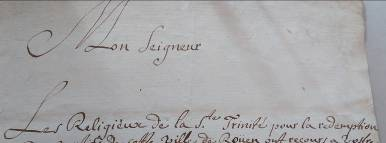 Mon Seigneur
Les Religieux de la S.te Trinité pour la redemption
de cette Ville de Roüen ont recours a vostre